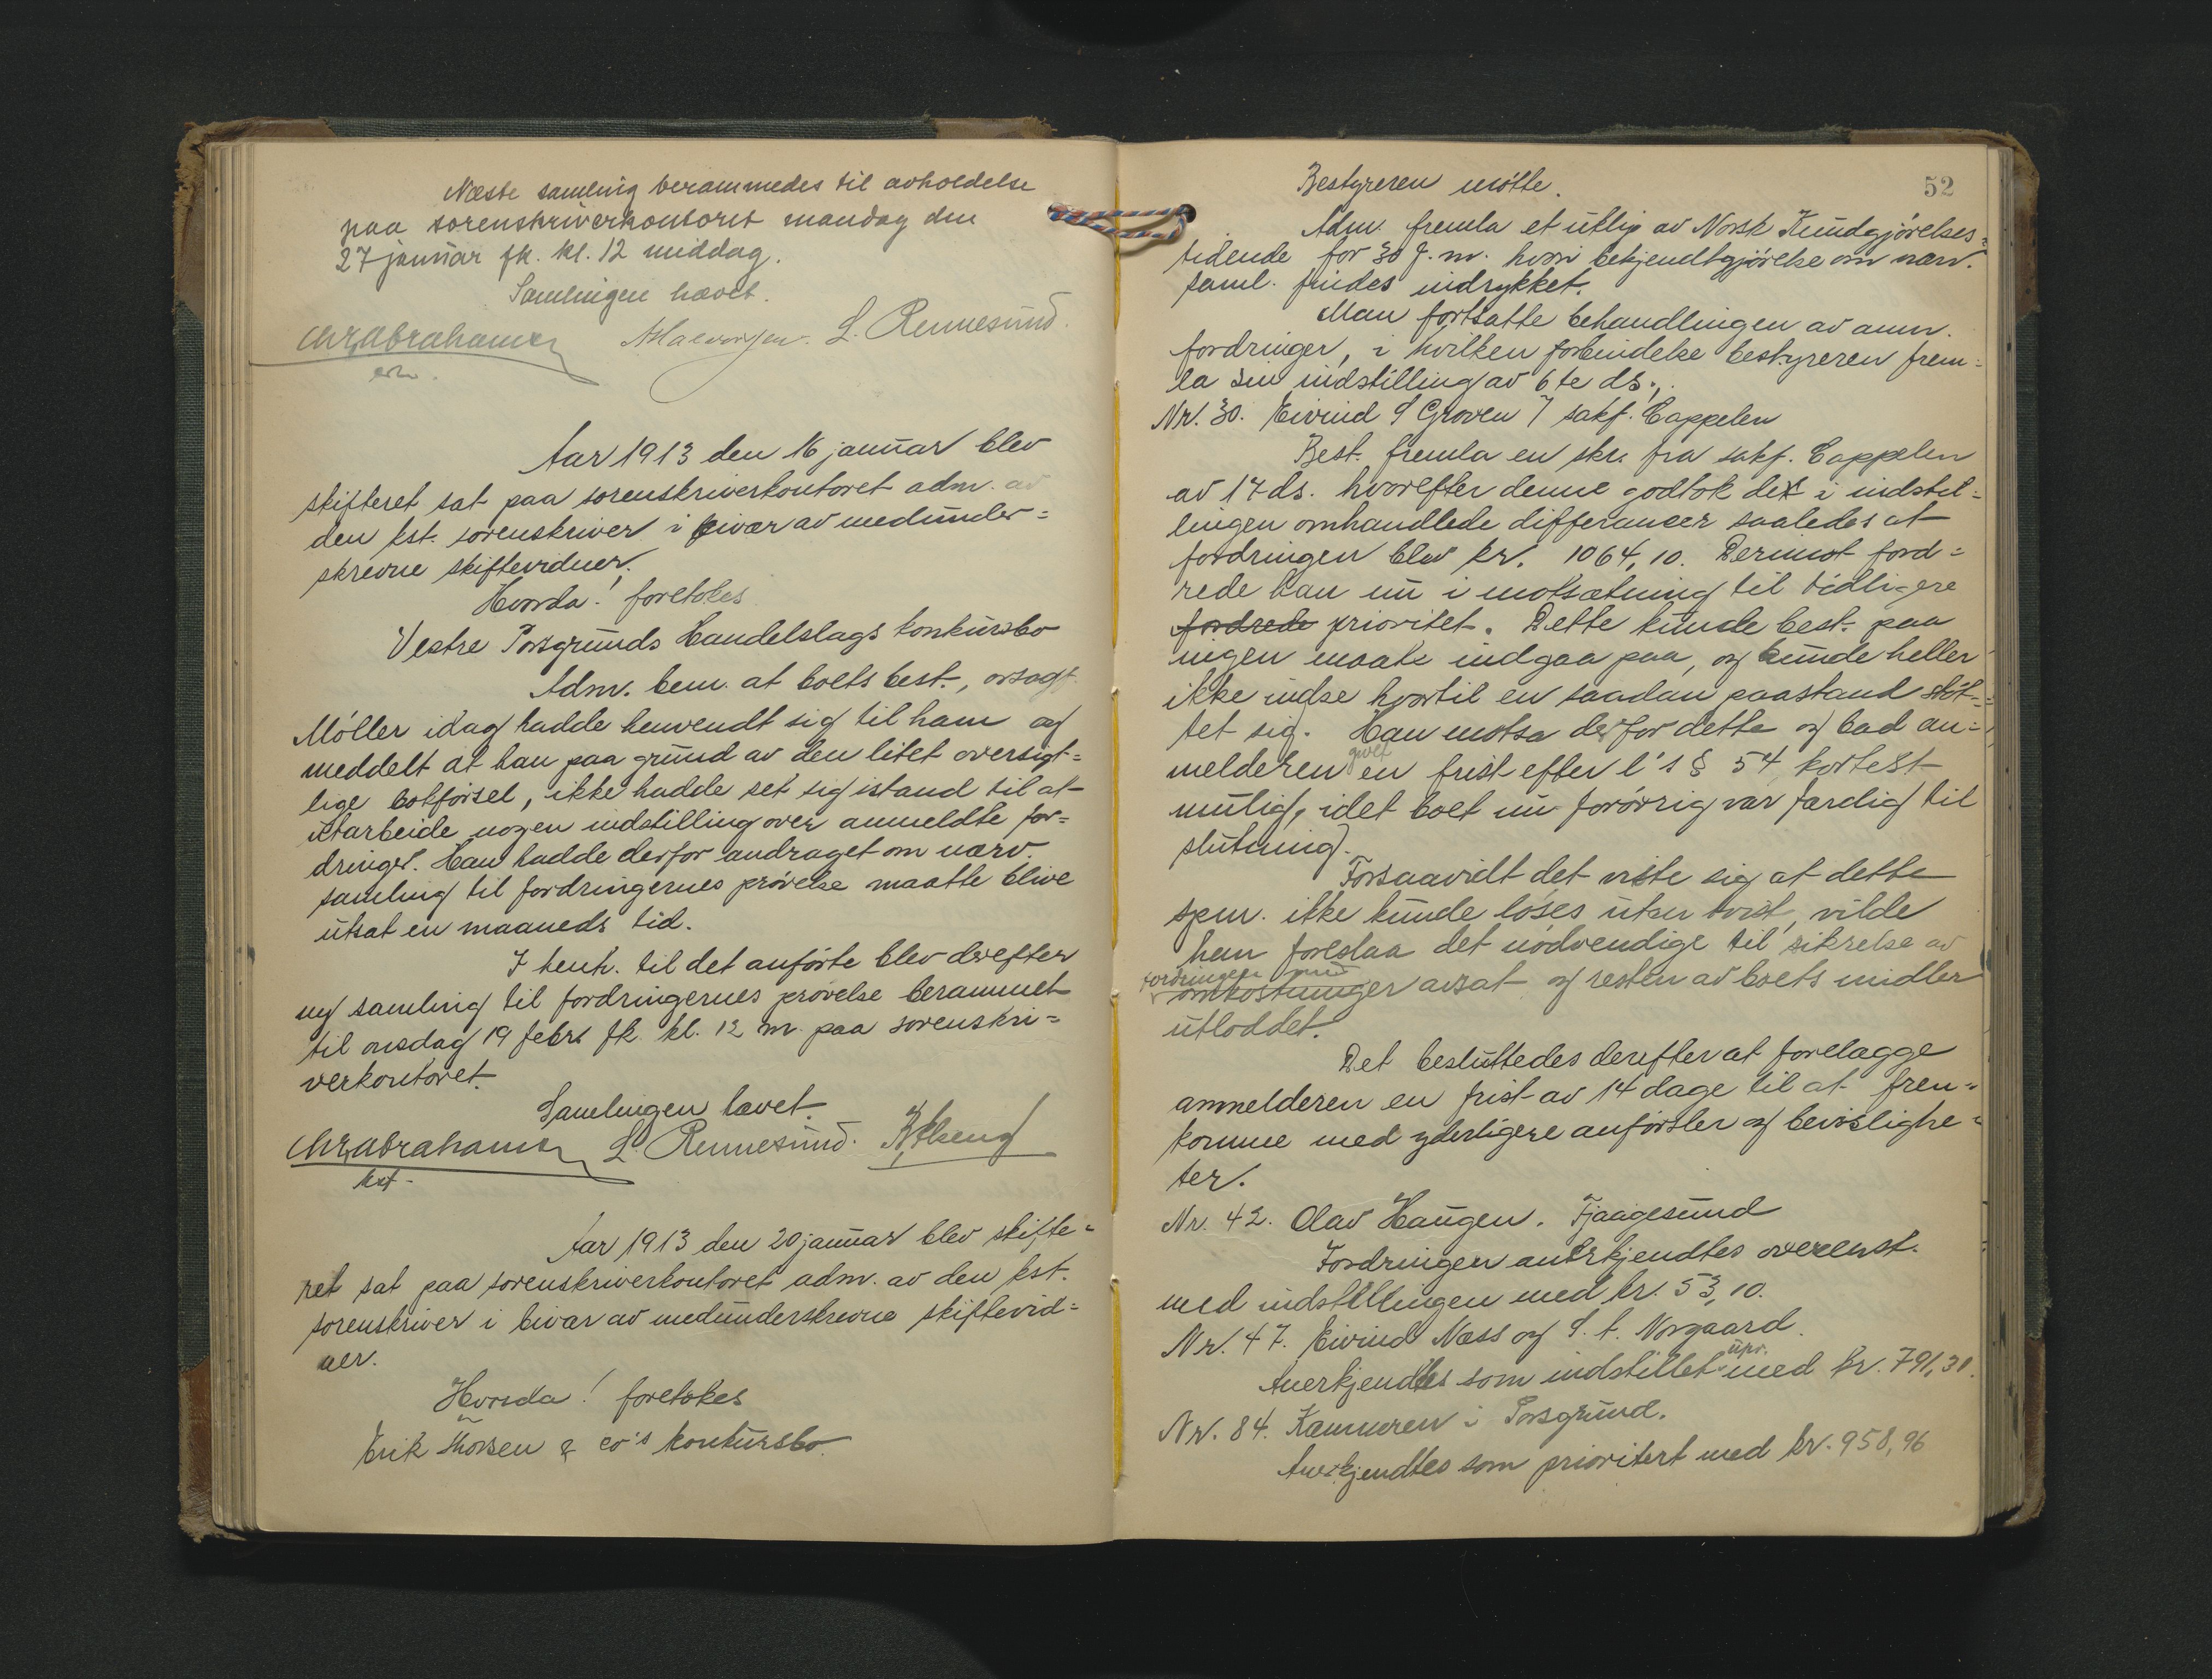 Næste samling berammedes til avholdelse
paa sorenskriverkontoret mandag den
27 januar fk. kl. 12 middag.
Samlingen hævet.
Chr Abrahamsen Halvorsen. L. Rennesund.
Aar 1913 den 16 januar blev
skifteret sat paa sorenskriverkontoret adm. av
den kst. sorenskriver i bivær av medunder=
skrevne skiftevidner.
Hvorda! foretokes
Vestre Porsgrunds Handelslags konkursbo
Adm. bem. at boets best., orsagf.
Møller idag hadde henvendt sig til ham og
meddelt at han paa grund av den litet oversigt=
lige bokførsel, ikke hadde set sig istand til at
utarbeide nogen indstilling over anmeldte for=
dringer. Han hadde derfor andraget om nærv.
samling til fordringernes prøvelse maatte blive
utsat en maaneds tid.
I henh. til det anførte blev derefter
ny samling til fordringernes prøvelse berammet
til onsdag 19 febr. fk. kl. 12 m. paa sorenskri=
verkontoret.
Samlingen hævet.
Chr Abrahamsen L Rennesund.
kst.
Aar 1913 den 20 januar blev skifte=
ret sat paa sorenskriverkontoret adm. av den kst.
sorenskriver i bivær av medunderskrevne skiftevid=
ner.
Hvorda! foretokes
Erik Thorsen & co's konkursbo.
52
Bestyreren møtte.
Adm. fremla et utklip av Norsk Kundgjørelses=
tidende for 30 f. m. hvori bekjendtgjørelse om nærv.
saml. findes indrykket.
Man fortsatte behandlingen av anm.
fordringer, i hvilken forbindelse bestyreren frem=
la sin indstilling av 6te ds.,
Nr. 30. Eivind S Groven / sakf. Cappelen
Best. fremla en skr. fra sakf. Cappelen
av 17 ds. hvorefter denne godtok de i indstil=
lingen omhandlede differancer saaledes at
fordringen blev kr. 1064,10. Derimot ford=
rede han nu i motsætning til tidligere
fordrede prioritet. Dette kunde best. paa
ingen maate indgaa paa, og kunde heller
ikke indse hvortil en saadan paastand støt=
tet sig. Han motsa derfor dette og bad an=
melderen givet en frist efter l's § 54 kortest
mulig, idet boet nu forøvrig var færdig til
slutning.
Forsaavidt det viste sig at dette
spm. ikke kunde løses uten tvist, vilde
han foreslaa det nødvendige til sikrelse av
fordringen med
omkostninger avsat og resten av boets midler
utloddet.
Det besluttedes derefter at forelægge
anmelderen en frist av 14 dage til at frem=
komme med yderligere anførsler og bevislighe=
ter.
Nr. 42. Olav Haugen. Fjaagesund
Fordringen anerkjendtes overenst.
med indstillingen med kr. 53,10.
Nr. 47. Eivind Næss og S. A. Norgaard.
Anerkjendtes som indstillet upr. med kr. 791,31.
Nr. 84. Kæmneren i Porsgrund.
Anerkjendtes som prioritert med kr. 958,96